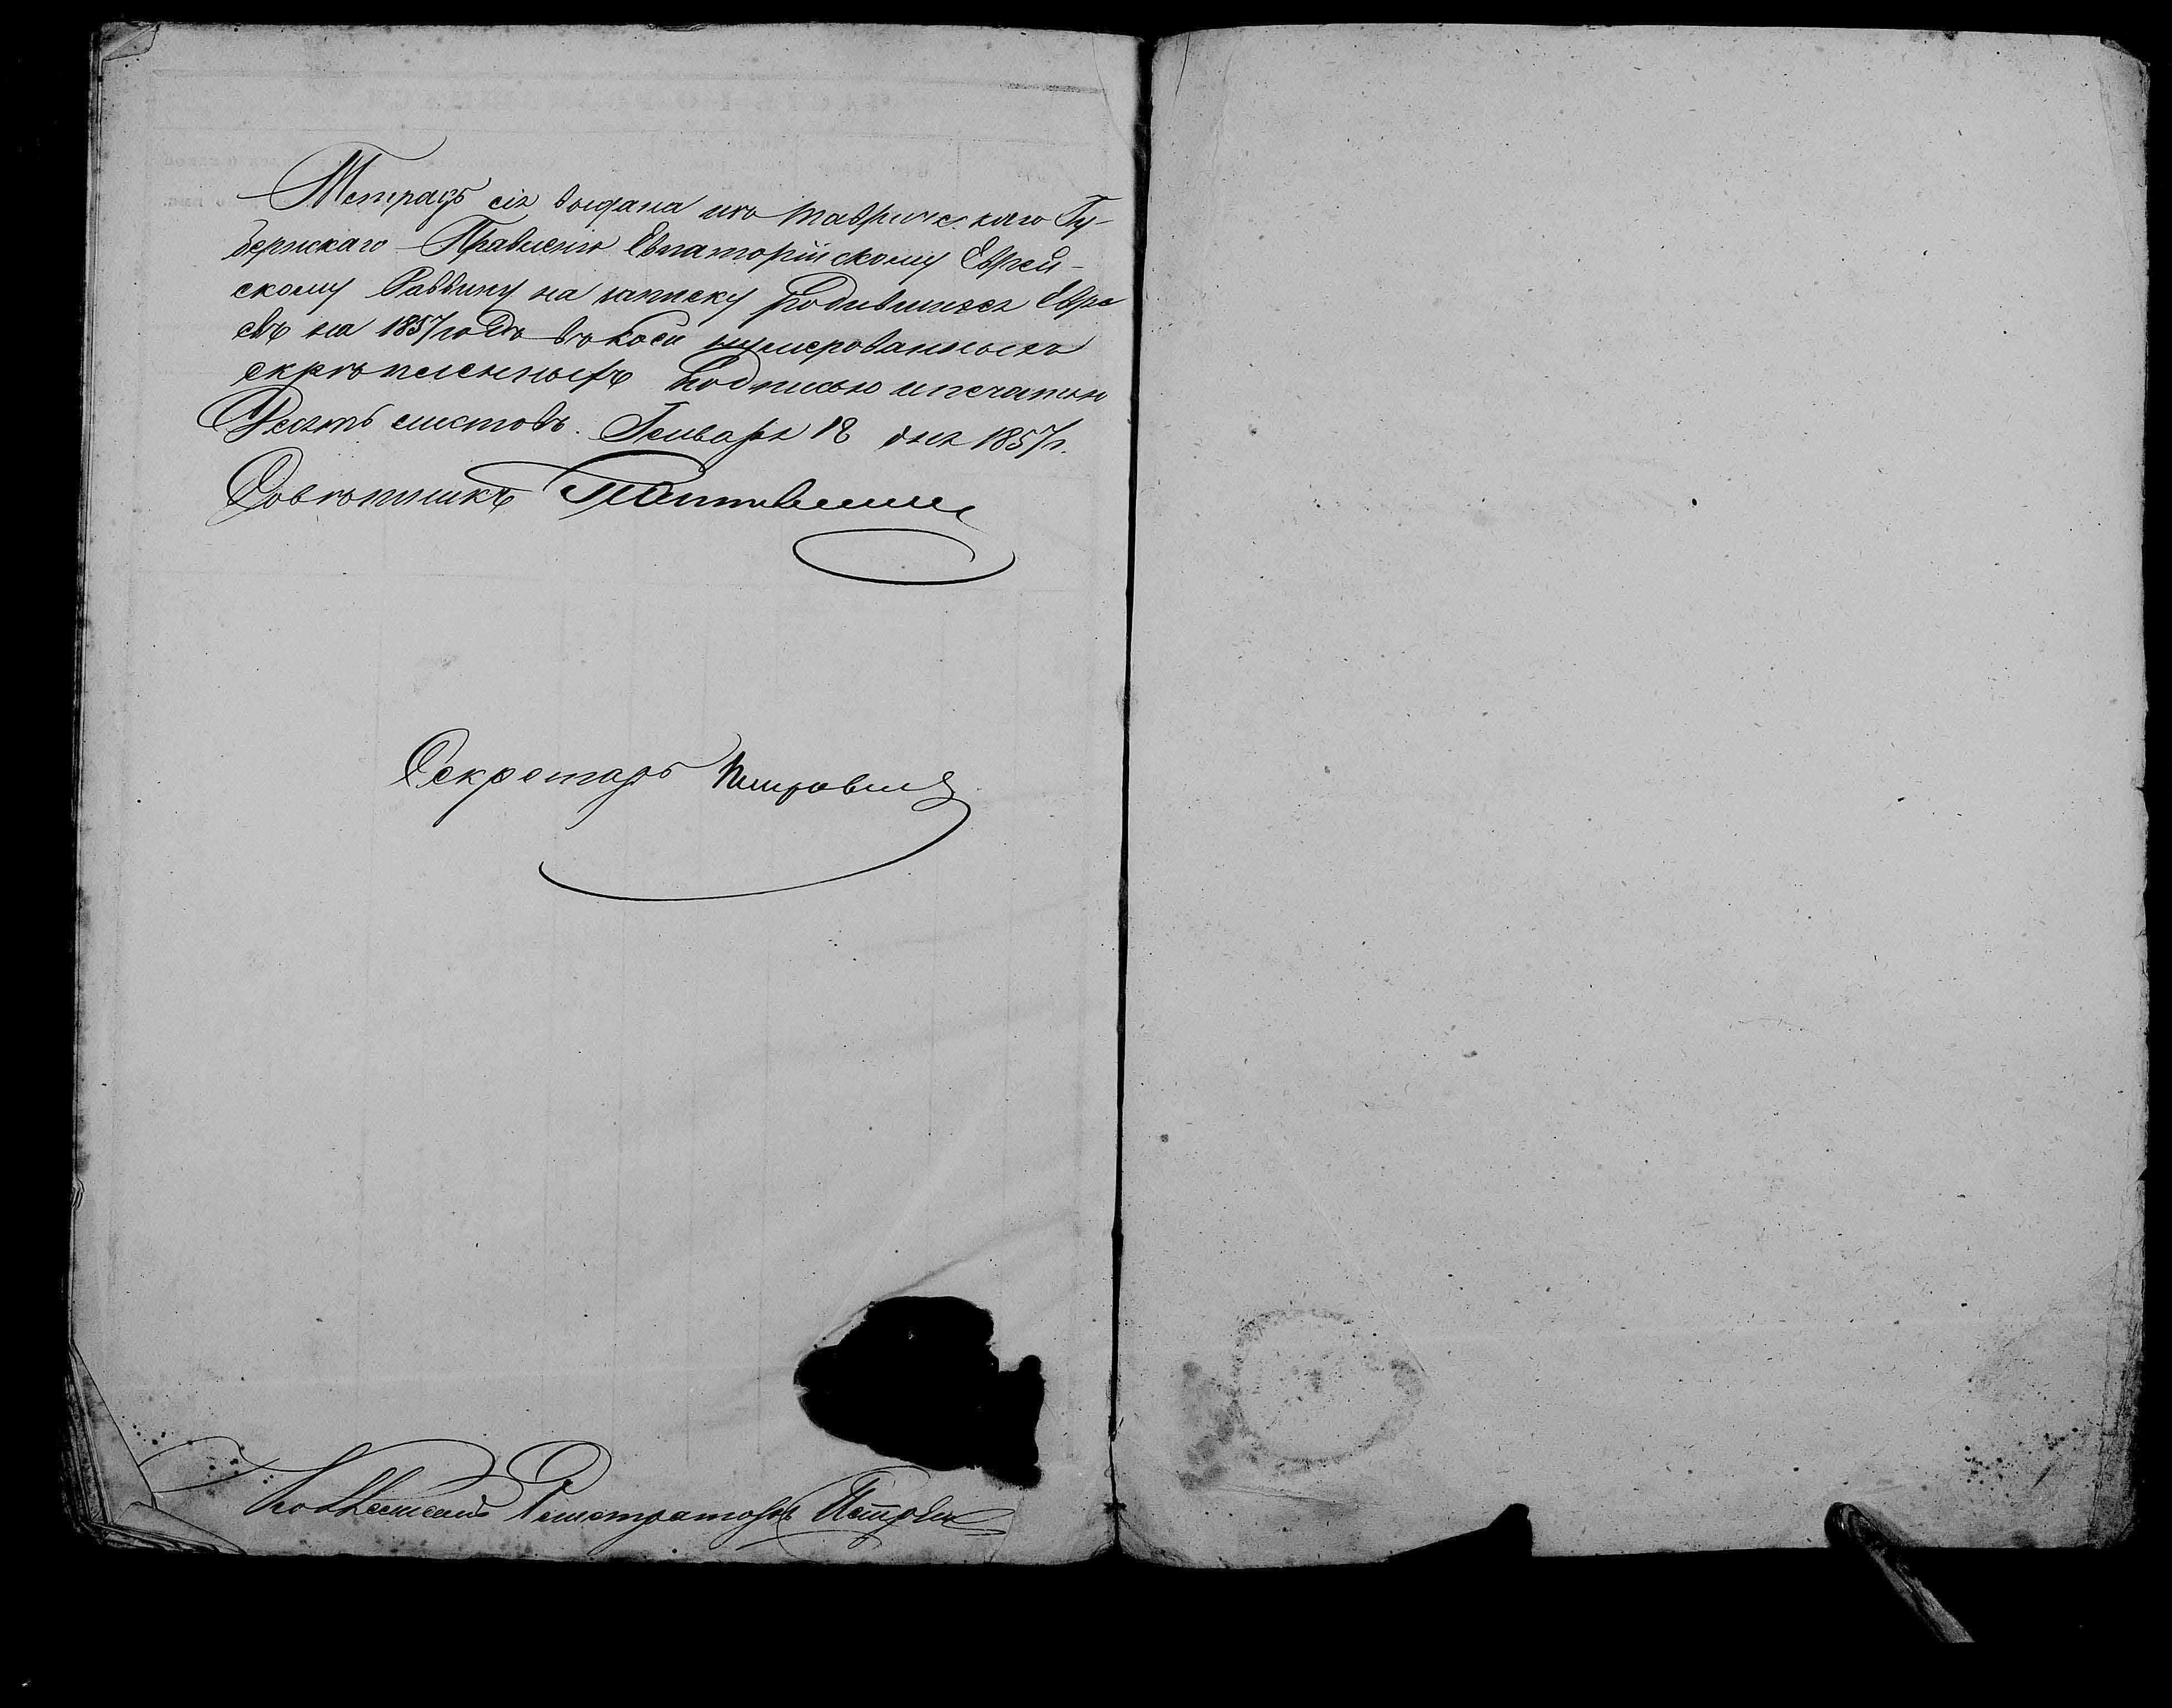 Тетрадь сія выдана изъ Таврическаго Гу-
бернскаго Правленія Евпаторійскому Еврей-
скому Раввину на записку родившихся Евре
евъ на 1857 годъ въ коей нумерованныхъ
скрѣпленныхъ подписью и печатью
Десять листовъ. Генваря 18 дня 1857 г.
Совѣтникъ
Секретарь
Коллежскій Регистраторъ